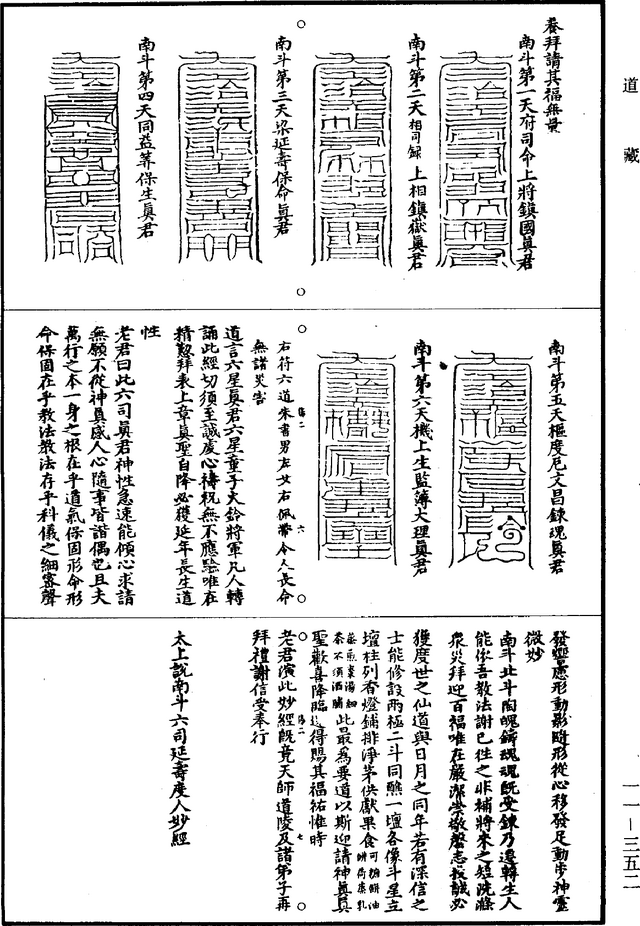 道藏
養拜請其福無量
南斗第一天府司命上將鎮國真君
南斗第二天相司錄上相鎮嶽真君
南斗第三天梁延壽保命真君
南斗第四天同益筭保生真君
南斗第五天樞度厄文昌鍊魂真君
南斗第六天機上生監簿大理真君
右符六道朱書男左女右佩帶令人長命
無諸災害
道言六星真君六星童子火鈴將軍凡人轉
誦此經切須至誠虔心禱祝無不應驗唯在
精懃拜表上章真聖自降必獲延年長生道
性
老君曰此六司真君神性急速能傾心求請
無願不從神真感人心隨事皆諧偶也且夫
萬行之本一身之根在乎道氣保固形命形
命保固在乎教法教法存乎科儀之細窮聲
發響應形動影隨形從心移發足動步神靈
微妙
南斗北斗陶魄鑄魂魂既受鍊乃還轉生人
能依吾教法謝已往之非補將來之短洗滌
衆災拜迎百福唯在嚴潔崇敬磬志投誠必
獲度世之仙道與日月之同年若有深信之
士能修設兩極二斗同醮一壇各像斗星立
壇柱列香燈鋪排淨茅供獻果食可糖餅油
茶不須酒脯此最為要道以斯迎請神真真
聖歡喜降臨得賜其福祐惟時
老君演此妙經既竟天師道陵及諸弟子再
拜禮謝信受奉行
太上說南斗六司延壽度人妙經
一一—三五二